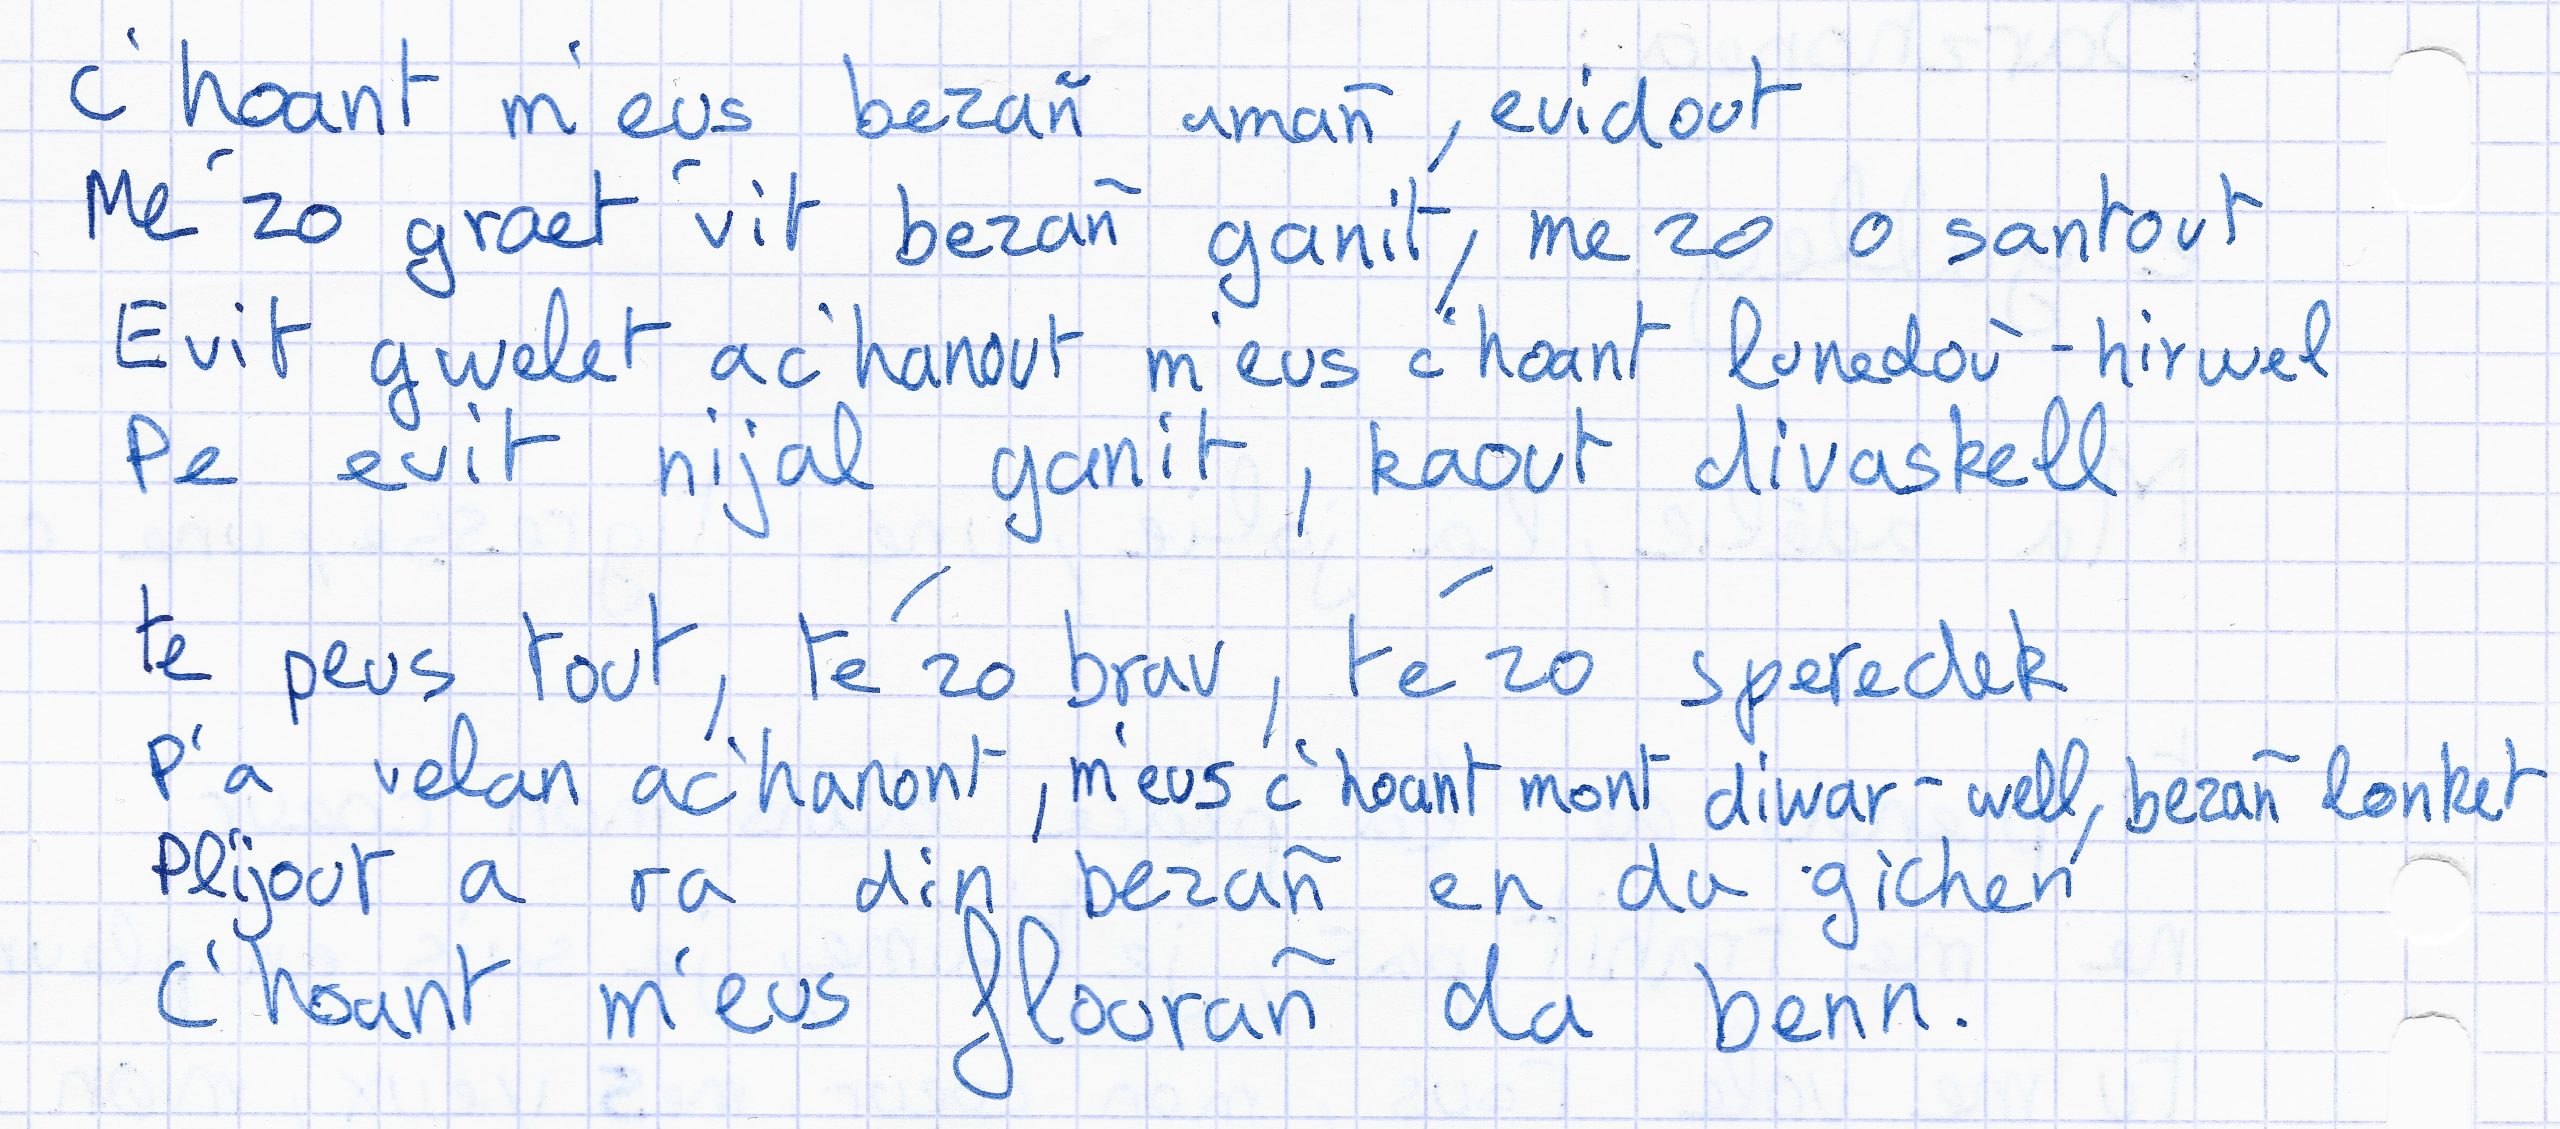 c'hoant m'eus bezañ amañ, evidout
Me'zo graet 'vit bezañ ganit, me zo o santout
Evit gwelet ac'hanout m'eus c'hoant lunedoù-hirwel
Pe evit nijal ganit, kaout divaskell
te peus tout, te'zo brav, te'zo speredek
P'a velan ac'hanont, m'eus c'hoant mont diwar-well, bezañ lonket
Plijout a ra din bezañ en da gichen
C'hoant m'eus flourañ da benn.